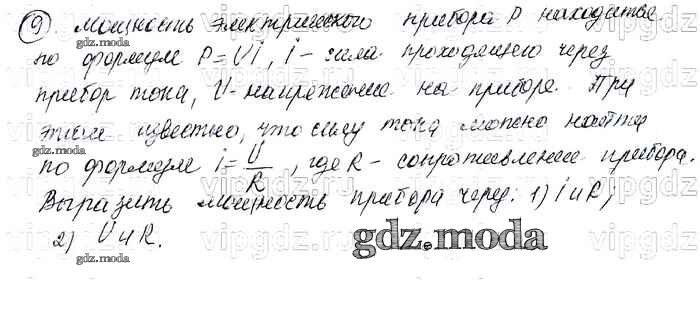 9) Мощность электрического прибора P находится
по формуле P=Ui, i - сила проходящего через
прибор тока, U - напряжение на приборе. При
этом известно, что силу тока можно найти
по формуле i=U/R, где R - сопротивление прибора.
Выразить мощность прибора через: 1) i и R;
2) U и R.
gdz.moda
gdz.moda
gdz.moda
gdz.moda
gdz.moda
gdz.moda
gdz.moda